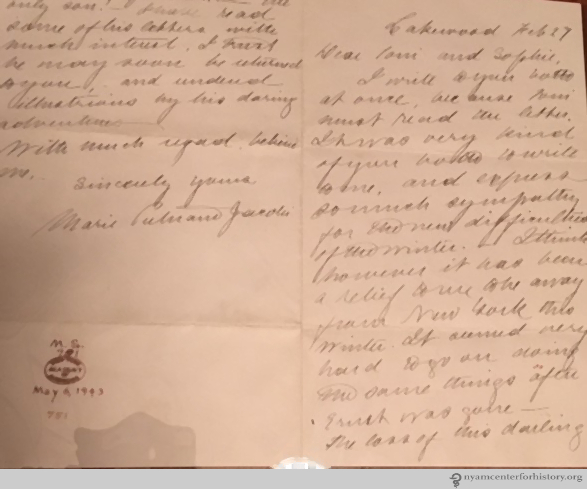 only son!— I have read
some of his letters with
much interest. I trust
he may soon be returned
to you, and
by his daring
adventures.
With much regard, believe
me.
Sincerely yours
Marie Putnam Jacobi
M. S.
May 6, 1943
Lakewood Feb 27
Dear Toni and Sophie,
I write to you both
at once, because Toni
must read the letter.
It was very kind
of you both to write
to me, and express
so much sympathy
for the new difficulties
of the winter. I think
however it has been
a relief to me to be away
from New York this
winter. It seemed very
hard to go on doing
the same things after
Ernst was gone—
The loss of this darling
nyamcenterforhistory.org